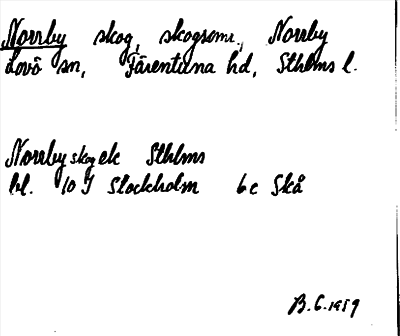 Norrby skog, skogsomr., Norrby
Lovö sn, Färentuna hd, Sthlms l.
Norrby skog ek Sthlms
bl. 10 I Stockholm 6 c Skå
B. G. 1959